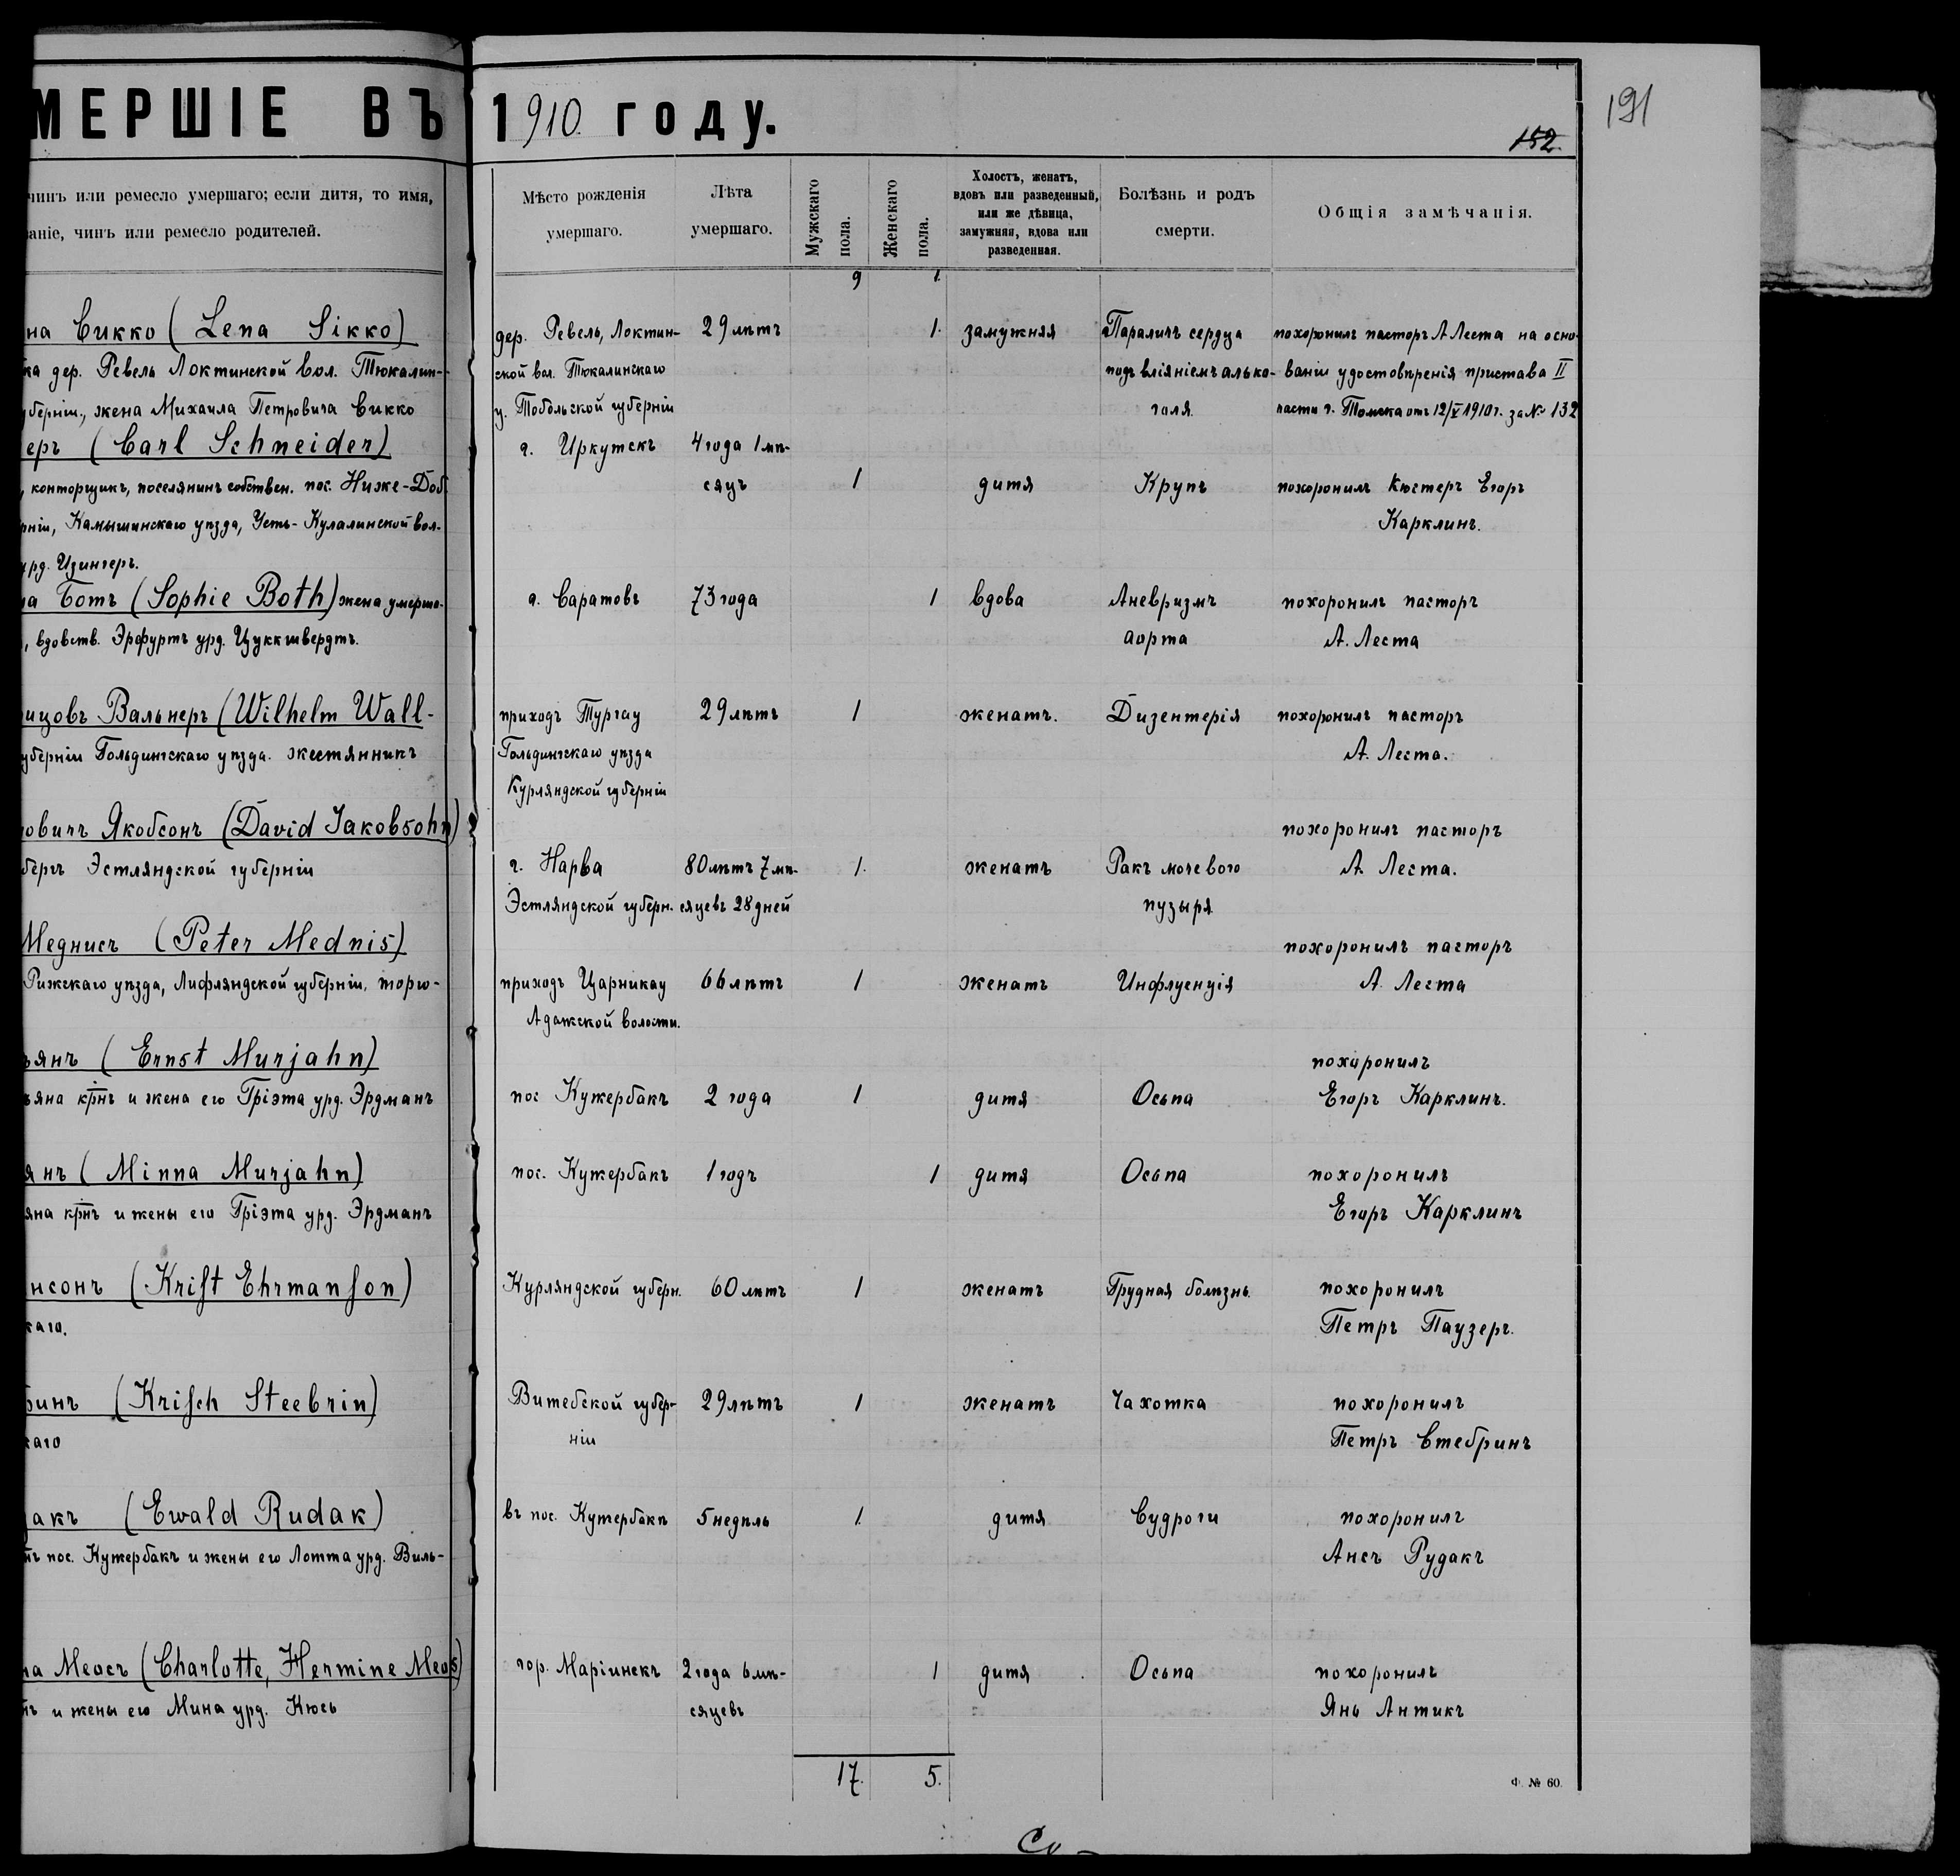 МЕРШІЕ ВЪ 1910 году.
152.
191
чинъ или ремесло умершаго; если дитя, то имя,
ваніе, чинъ или ремесло родителей.
Мѣсто рожденія
умершаго.
Лѣта
умершаго.
Мужскаго
пола.
Женскаго
пола.
Холостъ, женатъ,
вдовъ или разведенный,
или же дѣвица,
замужняя, вдова или
разведенная.
Болѣзнь и родъ
смерти.
Общія замѣчанія.
9 1.
на Сикко (Lena Sikko)
ка дер. Ревель Локтинской вол. Тюкалин-
уберніи, жена Михаила Петровича Сикко
дер. Ревель, Локтин-
ской вол. Тюкалинскаго
у. Тобольской губерніи
29 лѣтъ
1.
замужняя
Параличъ сердца
подъ вліяніемъ алько-
голя.
похоронилъ пасторъ А Леста на осно-
ваніи удостовѣренія пристава II
части г. Томска отъ 12/V 1910 г. за № 132
еръ (Carl Schneider)
, конторщикъ, поселянинъ собствен. пос. Ниже-Доб.
рніи, Камышинскаго уѣзда, Усть-Кулалинской вол.
урд. Изингеръ.
г. Иркутскъ
4 года 1 мѣ-
сяцъ
1
дитя
Крупъ
похоронилъ Кюстеръ Егоръ
Карклинъ.
на Ботъ (Sophie Both) жена умерша-
, вдовств. Эрфуртъ урд. Цуккшвердтъ.
г. Саратовъ
73 года
1
вдова
Аневризмъ
аорта
похоронилъ пасторъ
А. Леста
рицовъ Вальнеръ (Wilhelm Wall-
уберніи Гольдингскаго уѣзда. жестянникъ
приходъ Тургау
Гольдингскаго уѣзда
Курляндской губерніи
29 лѣтъ
1
женатъ.
Дизентерія
похоронилъ пасторъ
А. Леста.
овичъ Якобсонъ (David Jakobsohn)
бергъ Эстляндской губерніи
г. Нарва
Эстляндской губерн.
80 лѣтъ 7 мѣ-
сяцевъ 28 дней
1.
женатъ
Ракъ мочевого
пузыря
похоронилъ пасторъ
А. Леста.
Меднисъ (Peter Mednis)
Рижскаго уѣзда, Лифляндской губерніи, торго-
приходъ Царникау
Адажской волости.
66 лѣтъ
1
женатъ
Инфлуенція
похоронилъ пасторъ
А. Леста
ьянъ (Ernst Murjahn)
ьяна крнъ и жена его Гріэта урд. Эрдманъ
пос Кужербакъ
2 года
1
дитя
Осьпа
похоронилъ
Егоръ Карклинъ.
янъ (Minna Murjahn)
яна крнъ и жены его Гріэта урд. Эрдманъ
пос. Кужербакъ
1 годъ
1
дитя
Осьпа
похоронилъ
Егоръ Карклинъ
нсонъ (Krist Ehrmanson)
каго.
Курляндской губерн.
60 лѣтъ
1
женатъ
Грудная болѣзнь.
похоронилъ
Петръ Паузеръ.
бинъ (Krisch Steebrin)
каго
Витебской губер-
ніи
29 лѣтъ
1
женатъ
Чахотка
похоронилъ
Петръ Стебринъ
дакъ (Ewald Rudak)
нъ пос. Кужербакъ и жены его Лотта урд. Виль-
въ пос. Кужербакъ
5 недѣль
1.
дитя
Судроги
похоронилъ
Ансъ Рудакъ
на Меосъ (Charlotte, Hermine Meos)
нъ и жены его Мина урд. Кюсь
гор. Маріинскъ
2 года 6 мѣ-
сяцевъ
1
дитя
Осьпа
похоронилъ
Янь Антикъ
17. 5.
Ф. № 60.